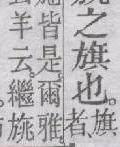 之旗也。旗
者
旄皆是。爾雅
羊云。繼旄